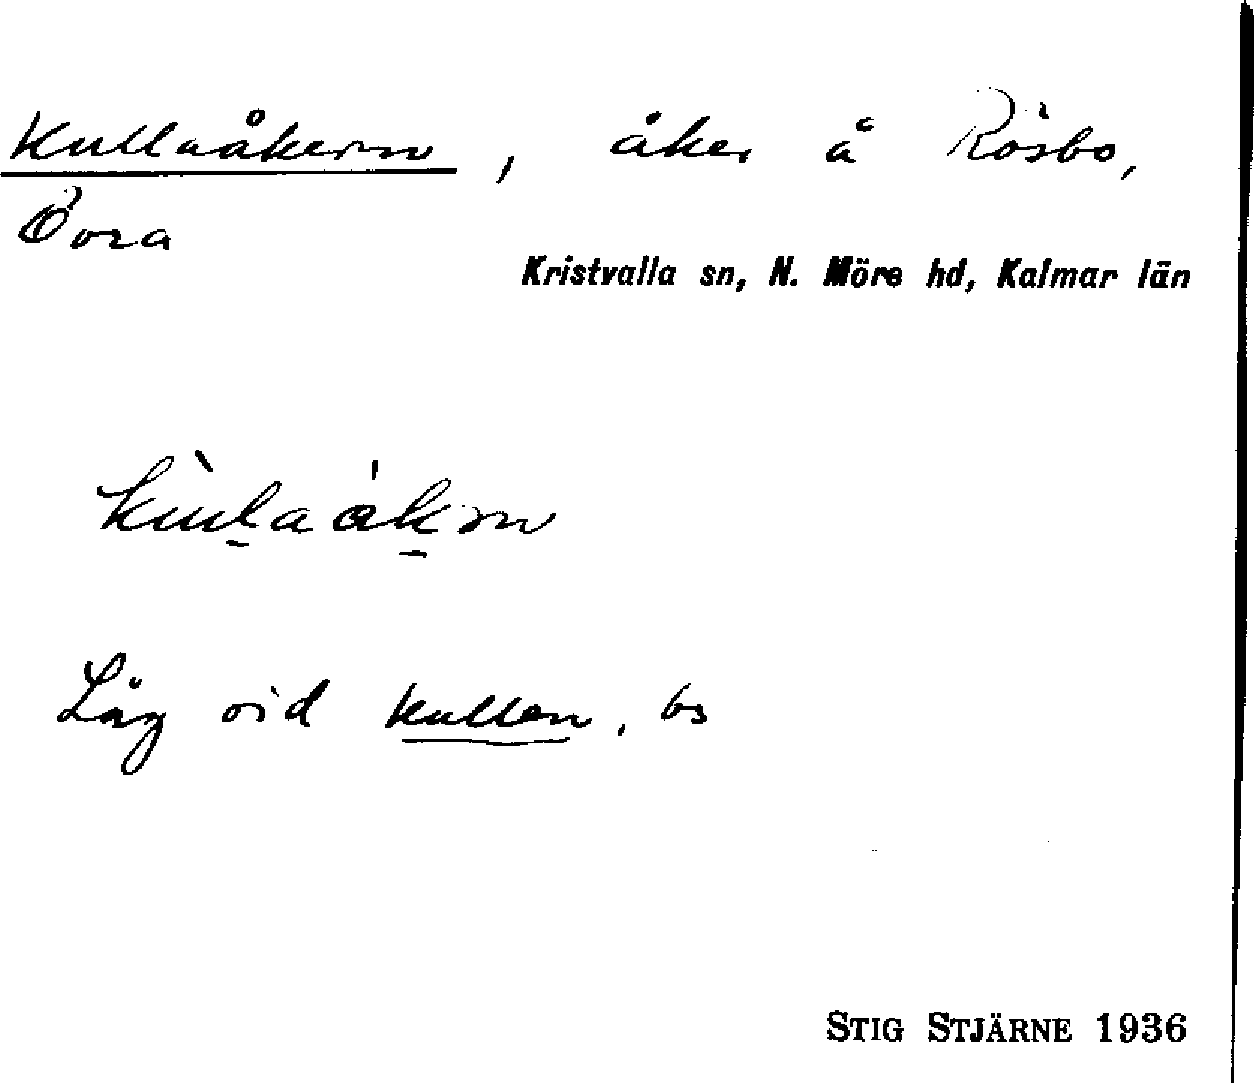 Kullaåkern, åker å Rösbo,
Övra
Kristvalla sn, N. Möre hd, Kalmar län
Låg vid Kullen, bs
STIG STJÄRNE 1936